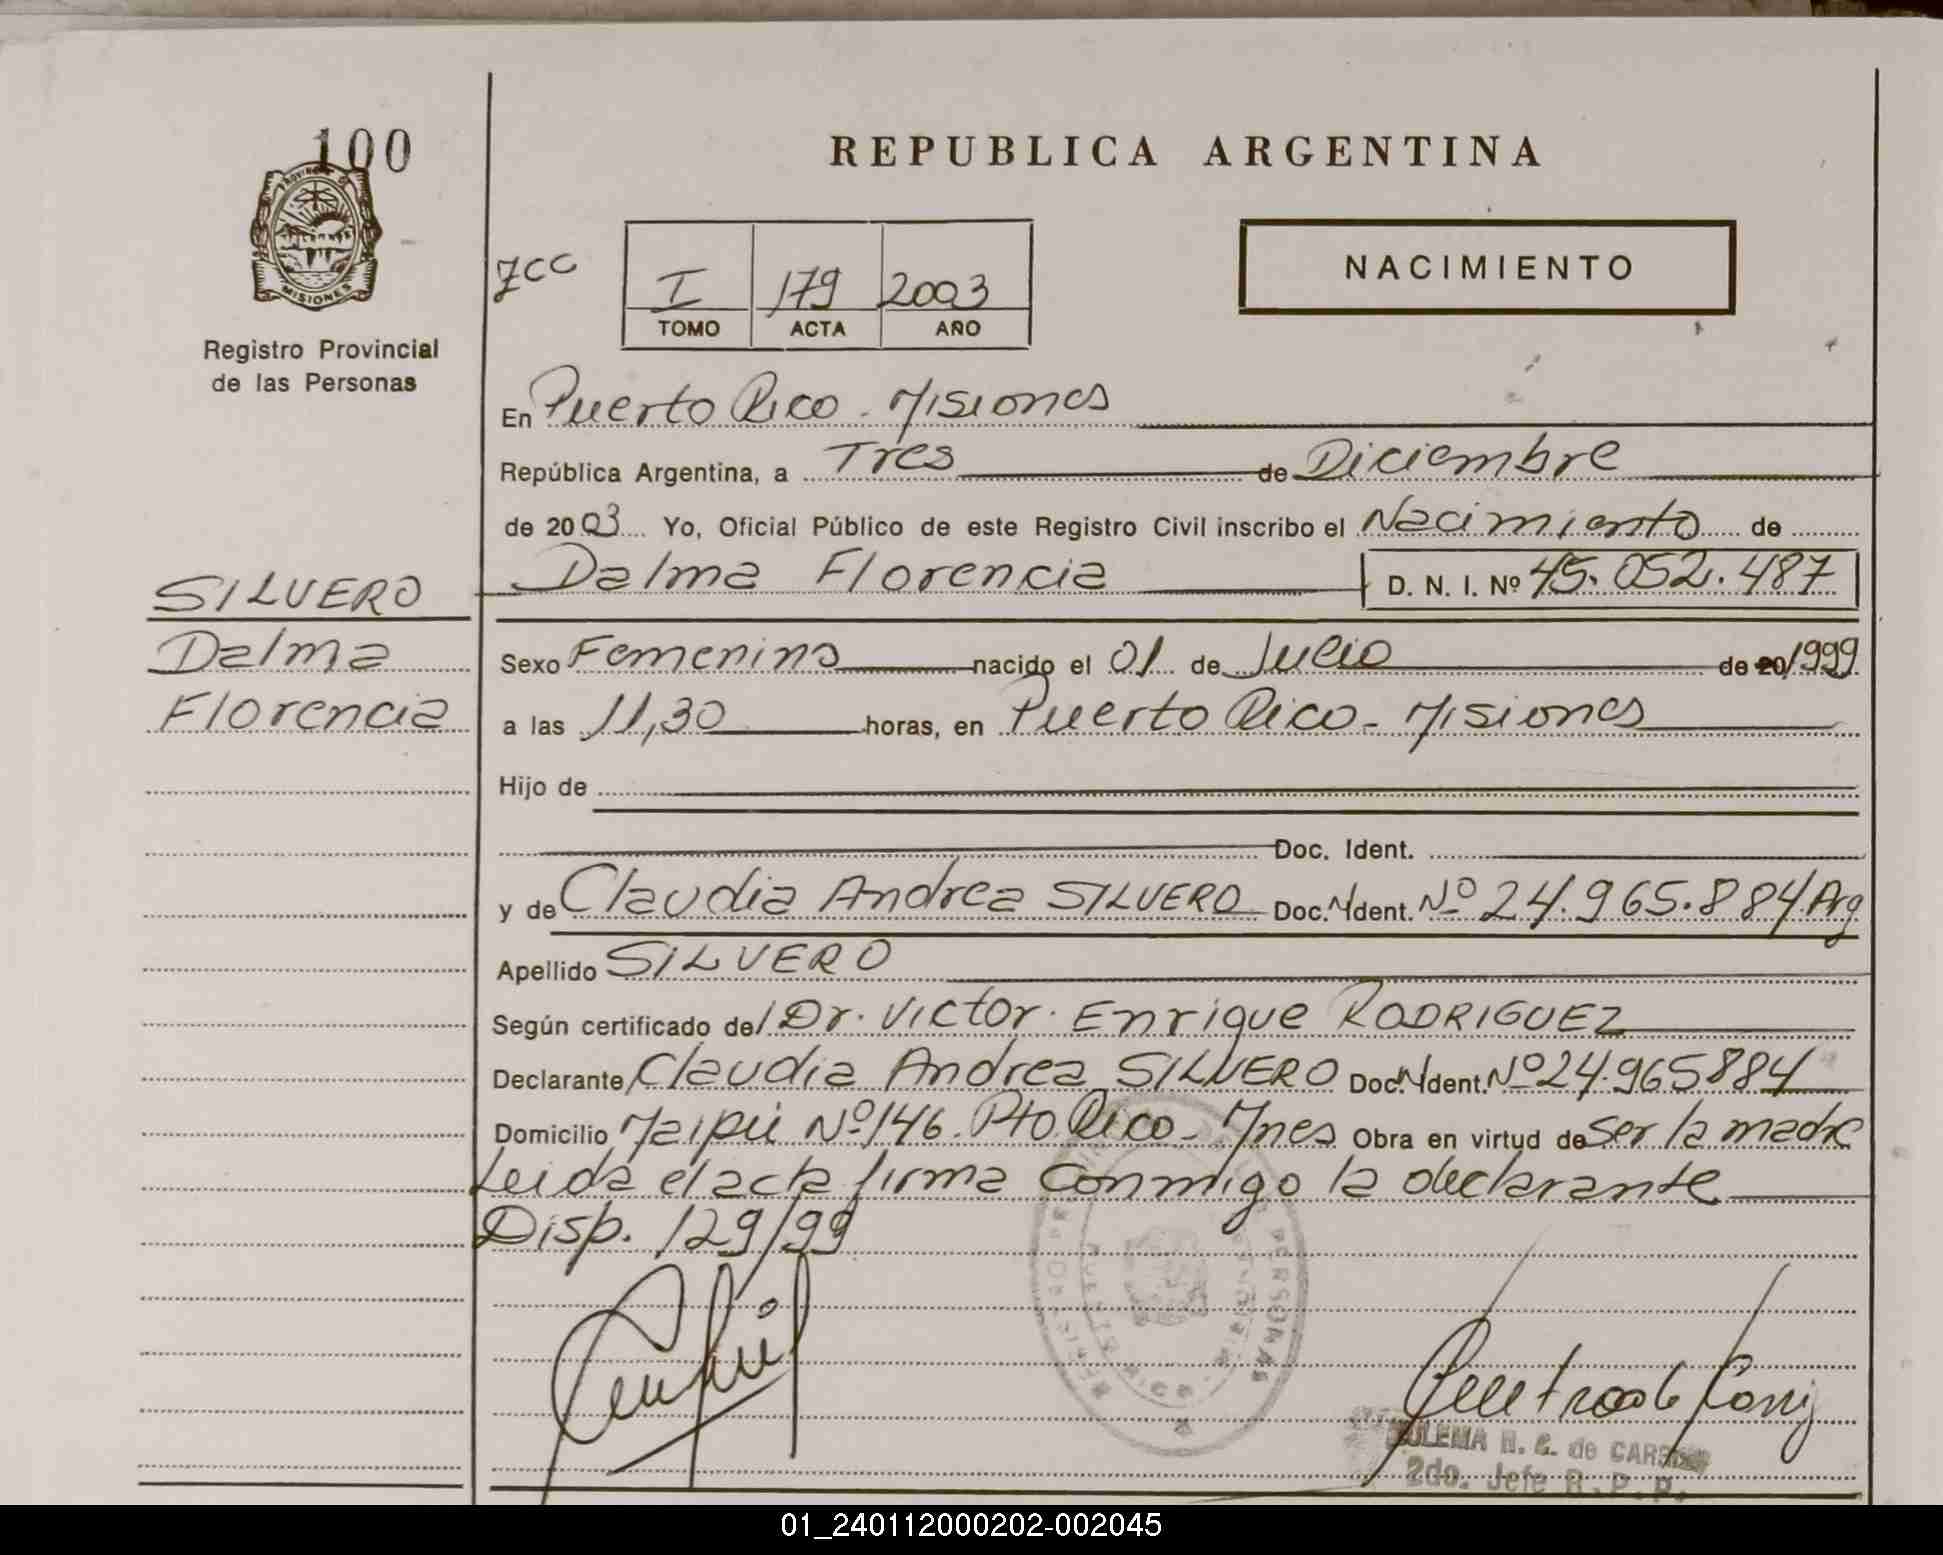 100
PROVINCIA D
MISIONES
Registro Provincial
de las Personas
REPUBLICA ARGENTINA
I 179 2003
TOMO ACTA AÑO
NACIMIENTO
En Puerto Rico - Misiones
República Argentina, a Tres de Diciembre
de 2003 Yo, Oficial Público de este Registro Civil inscribo el Nacimiento de
Dalma Florencia D. N. I. Nº 45.052.487
SILVERO
Dalma
Florencia
Sexo Femenino nacido el 01 de Julio de 20 1999
a las 11,30 horas, en Puerto Rico - Misiones
Hijo de
Doc. Ident.
y de Claudia Andrea SILVERO Doc. N Ident. Nº 24.965.884 Arg
Apellido SILVERO
Según certificado del Dr. Victor Enrique RODRIGUEZ
Declarante Claudia Andrea SILVERO Doc. N Ident. Nº 24.965884
Domicilio Maipú Nº 146. Pto Rico - Mnes Obra en virtud de Ser la madre
Leida el acta firma conmigo la declarante
Disp. 129/99
PERSONAS
ZULEMA H. G. de
2do. Jefe R. P. P.
01_240112000202-002045